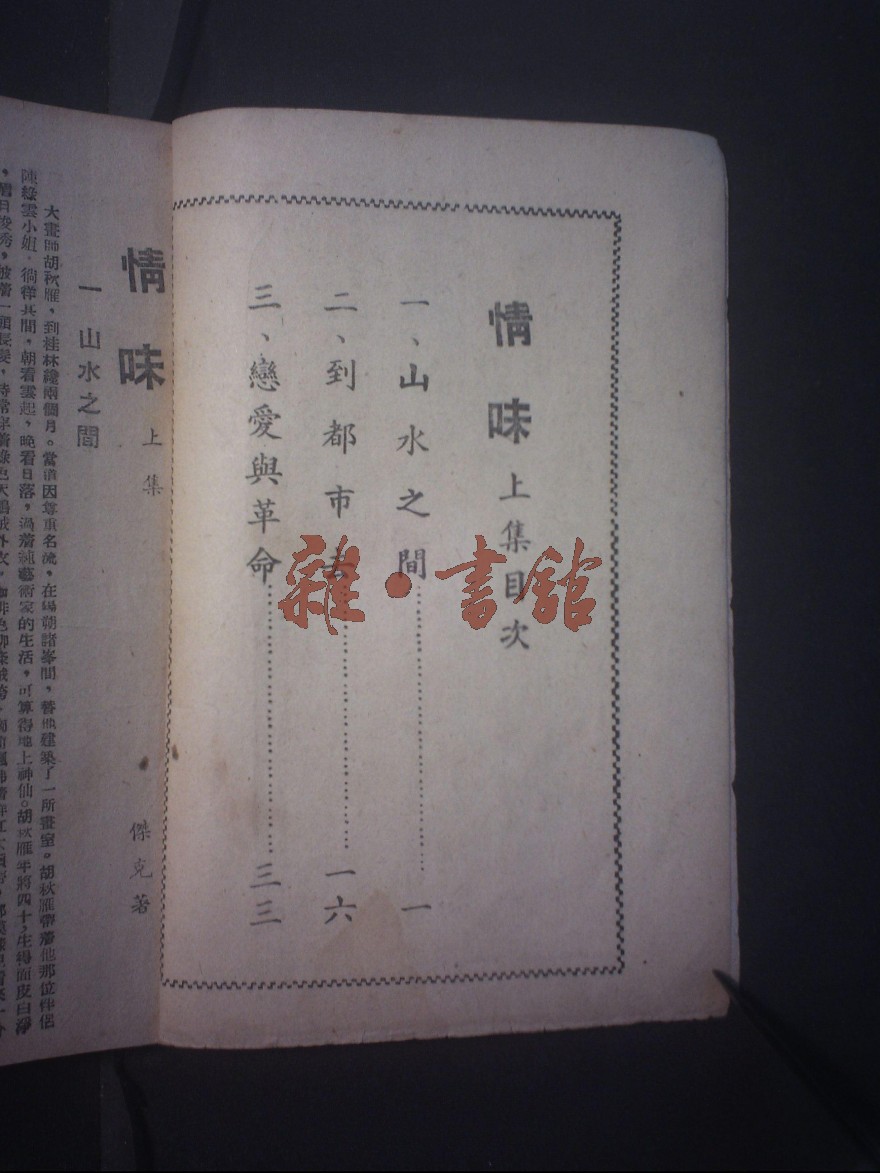 情味上集目次
一、山水之間………一
二、到都市去………一六
三、戀愛與革命………三三
雜·書館
情味 上集
傑克著
一 山水之間
大畫師胡秋雁，到桂林纔兩個月。當道因尊重名流，在陽朔諸峯間，替他建築了一所畫室。胡秋雁帶着他那位伴侶
陳綠雲小姐，徜徉其間，朝看雲起，晚看日落，過着純藝術家的生活，可算得地上神仙。胡秋雁年將四十，生得面皮白淨